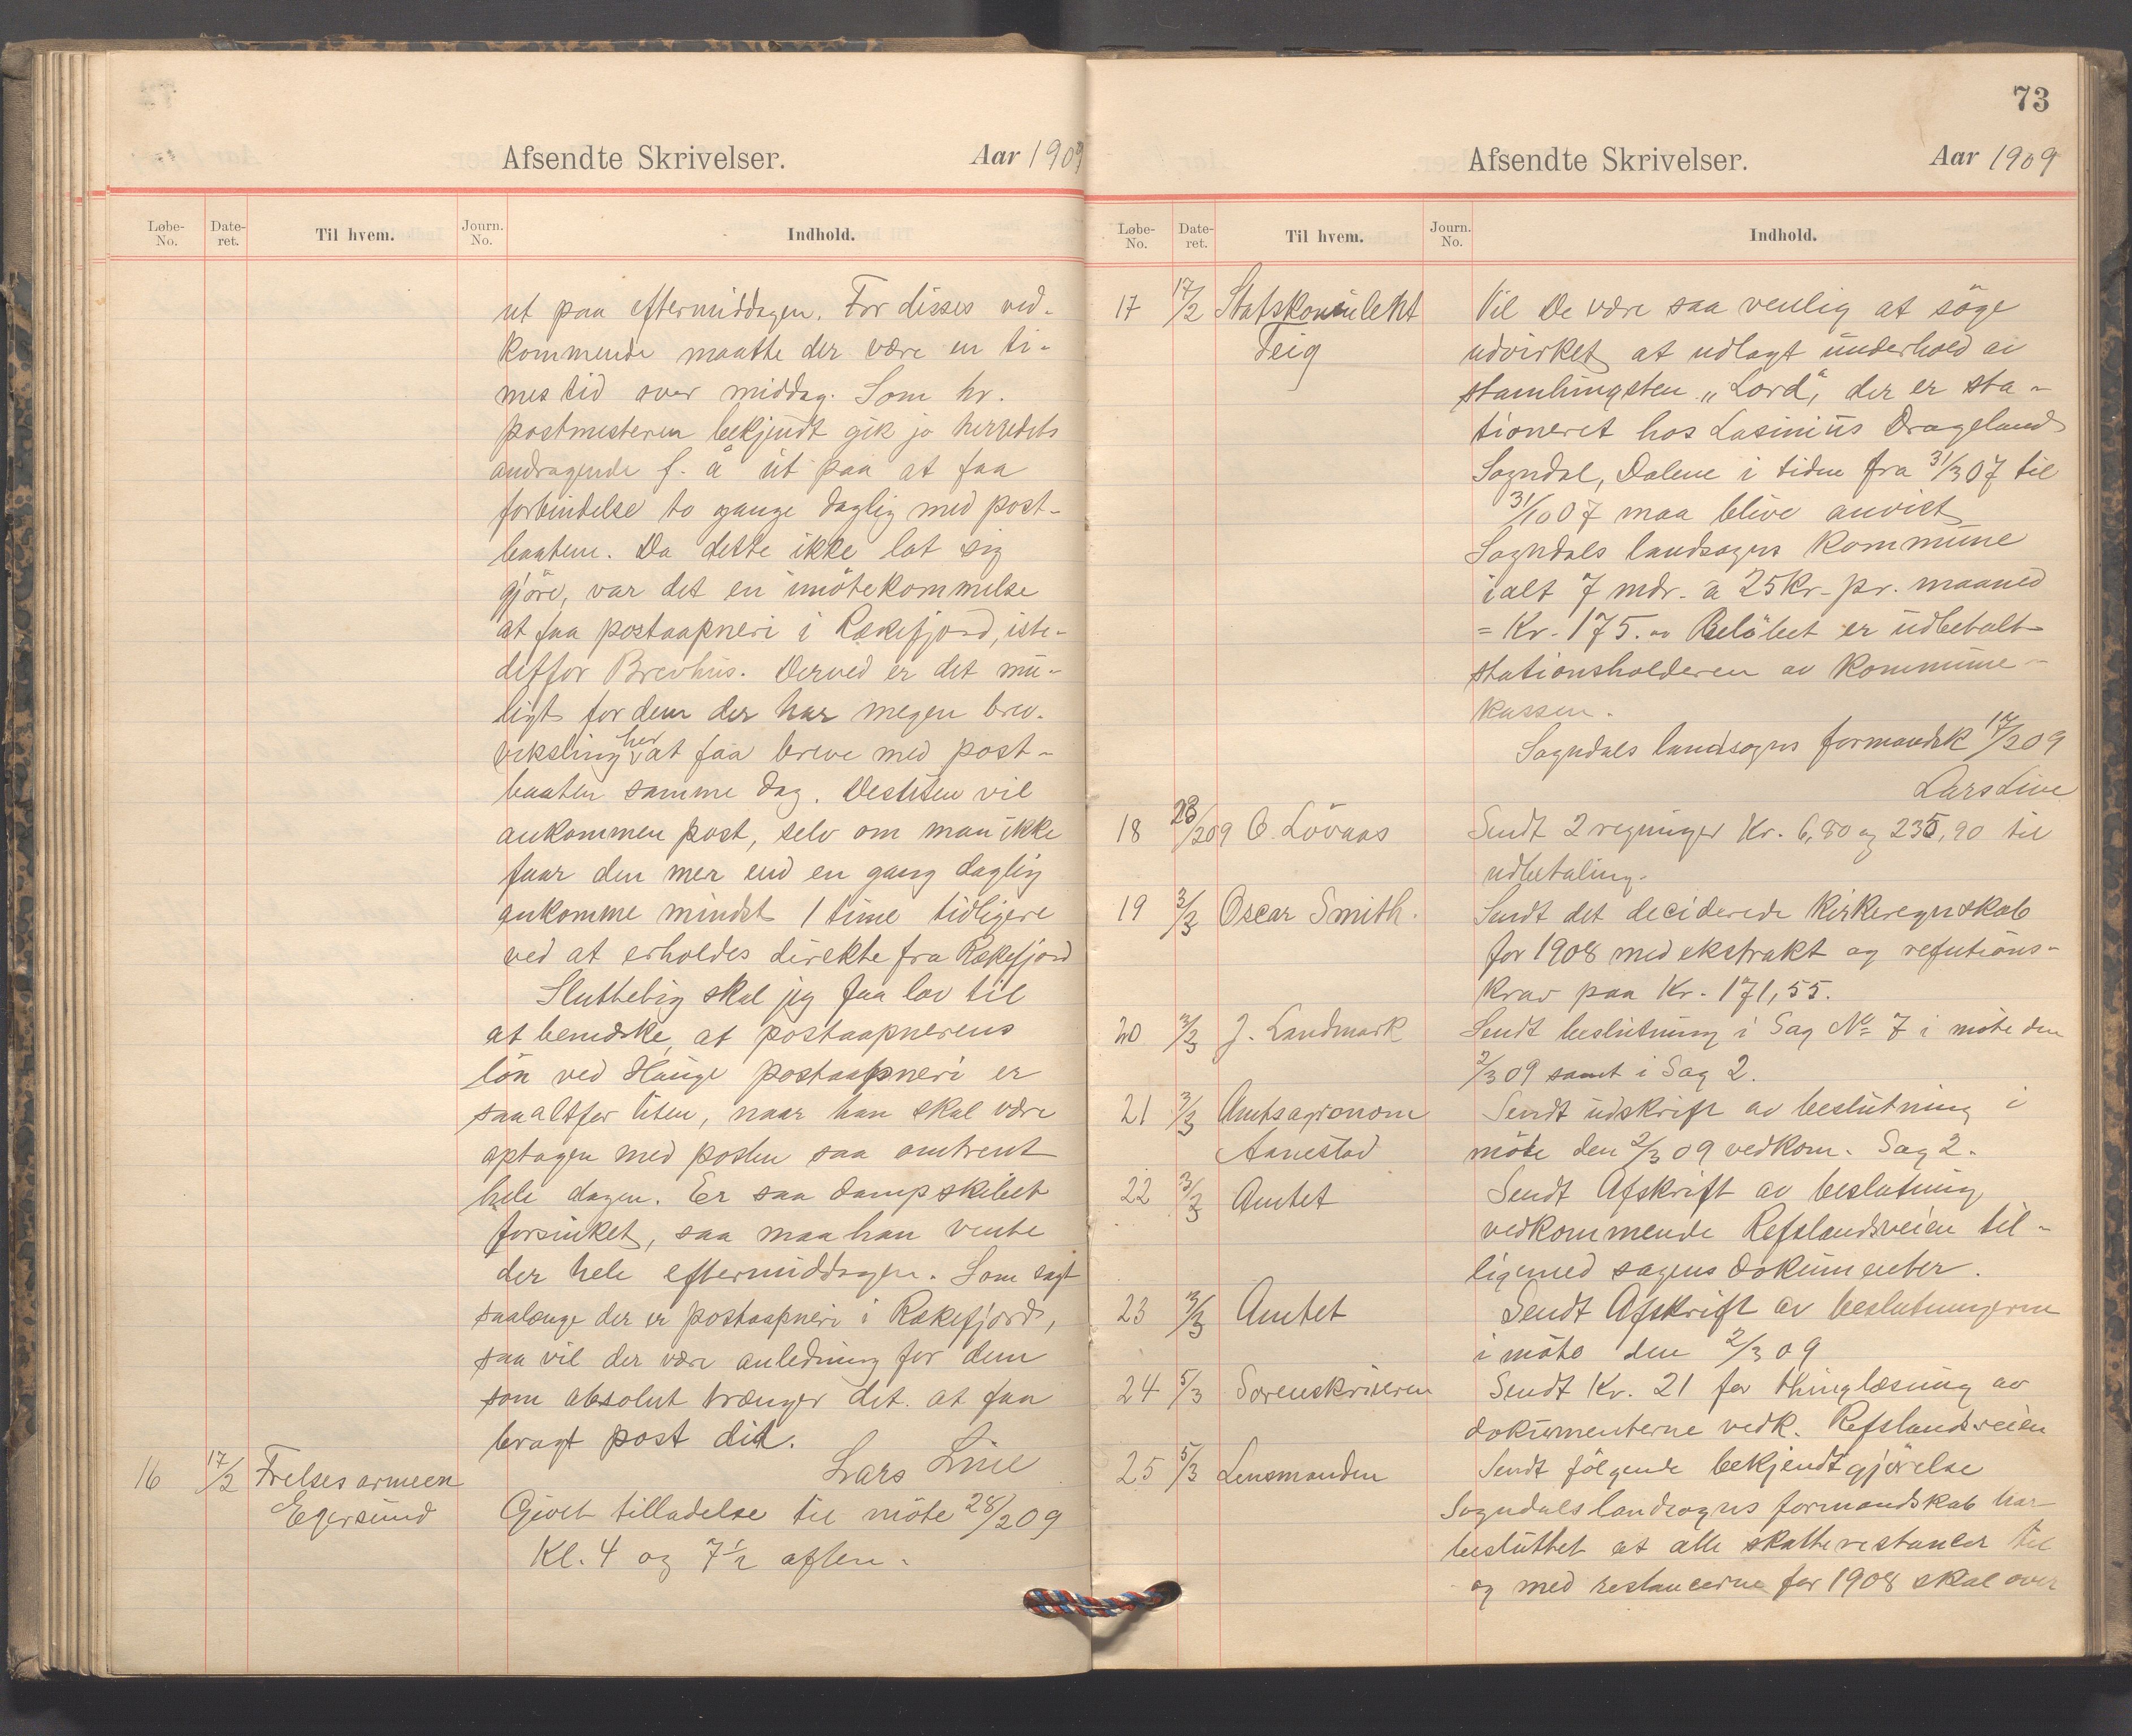 Afsendte Skrivelser. Aar 1909
Løbe-No. Date-ret. Til hvem. Journ. No. Indhold.
ut paa eftermiddagen. For disses ved-
kommende maatte der være en ti-
mes tid over middag. Som hr.
postmesteren bekjendt gik jo herredets
andragende f. å ut paa at faa
forbindelse to gange daglig med post-
baaten. Da dette ikke lot sig
gjöre, var det en imötekommelse
at faa postaapneri i Rækefjord, iste-
detfor Brevhus. Derved er det mu-
ligt for dem der har megen brev-
veksling her at faa breve med post-
baaten samme dag. Desuten vil
ankommen post, selv om man ikke
faar den mer end en gang daglig
ankomme mindst 1 time tidligere
ved at erholdes direkte fra Rekefjord
Sluttelig skal jeg faa lov til
at bemærke, at postaapnerens
lön ved Hauge postaapneri er
saa altfor liten, naar han skal være
optagen med posten saa omtrent
hele dagen. Er saa dampskibet
forsinket, saa maa han vente
der hele eftermiddagen. Som sagt
saalænge der er postaapneri i Rækefjord,
saa vil der være anledning for dem
som absolut trænger det. at faa
bragt post did.
Lars Line
16 17/2 Frelsesarmeen Givet tilladelse til möte 28/2 09
Egersund Kl. 4 og 7 1/2 aften.
73
Afsendte Skrivelser. Aar 1909
Løbe-No. Date-ret. Til hvem. Journ. No. Indhold.
17 17/2 Statskonsulent Vil De være saa venlig at söge
Feig udvirket at udlagt underhold av
stamhingsten „Lord", der er sta-
tioneret hos Lasinius Drageland
Sogndal, Dalene i tiden fra 31/3 07 til
31/10 07 maa blive anvist
Sogndals landsogns kommune
ialt 7 mdr. a 25 kr. pr. maaned
= Kr. 175. Belöbet er udbetalt
stationsholderen av kommune-
kassen.
Sogndals landsogns formandsk 17/2 09
Lars Line
18 23/2 09 O. Lövaas Sendt 2 regninger Kr. 6,80 og 235,90 til
udbetaling.
19 3/3 Oscar Smith. Sendt det deciderede kirkeregnskab
for 1908 med ekstrakt og refutions-
krav paa Kr. 171,55.
20 3/3 J. Landmark Sendt beslutning i Sag No 7 i möte den
2/3 09 samt i Sag 2.
21 3/3 Amtsagronom Sendt udskrift av beslutning i
Aanestad möte den 2/3 09 vedkom. Sag 2.
22 3/3 Amtet Sendt Afskrift av beslutning
vedkommende Refslandsveien til-
ligemed sagens dokumenter.
23 3/3 Amtet Sendt Afskrift av beslutningerne
i möte den 2/3 09
24 5/3 Sorenskriveren Sendt Kr. 21 for thinglæsning av
dokumenterne vedk. Refslandsveien
25 5/3 Lensmanden Sendt fölgende bekjendtgjörelse
Sogndals landsogns formandskab har
besluttet at alle skatterestancer til
og med restancerne for 1908 skal over